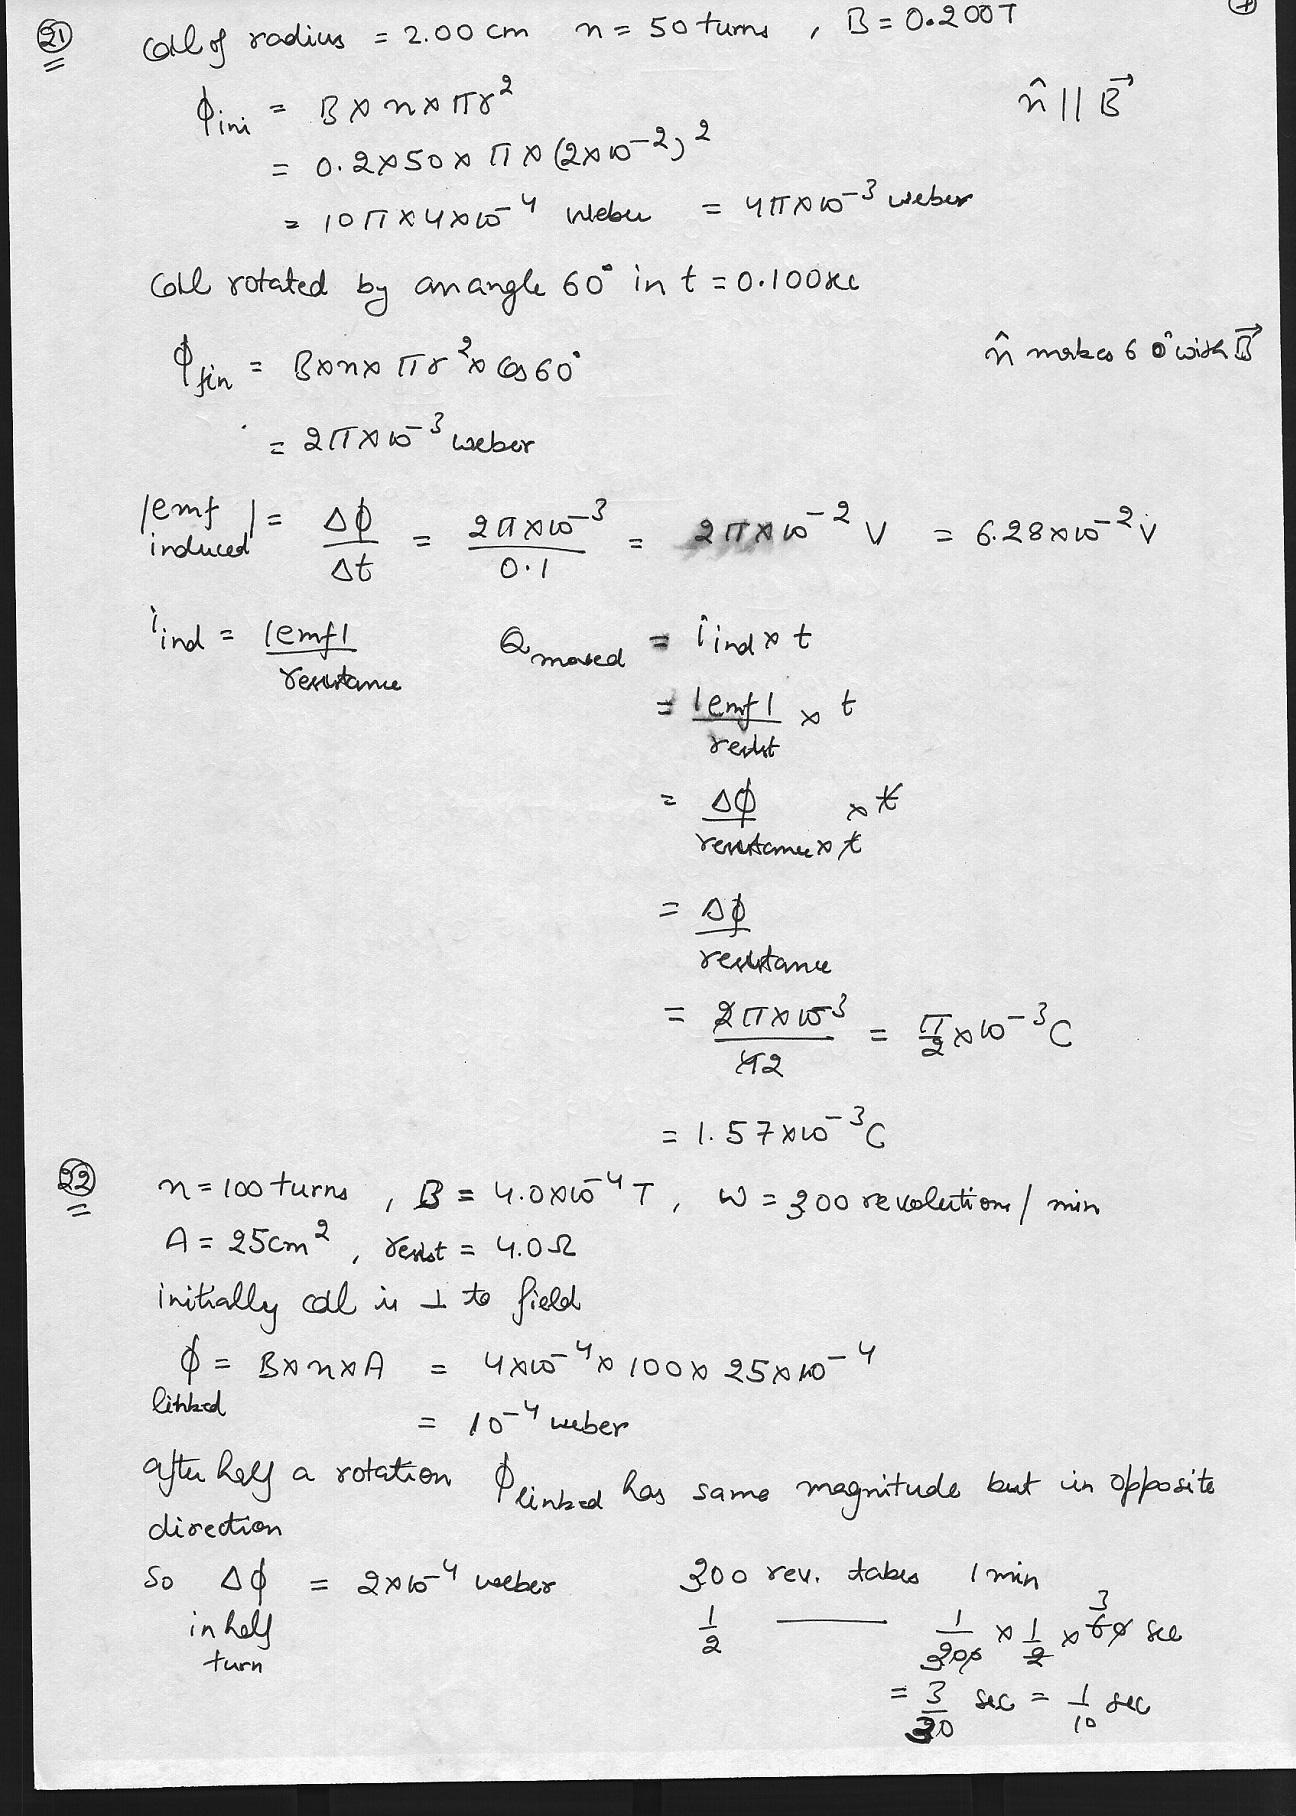 21 coil of radius = 2.00 cm n = 50 turns , B = 0.200T
ϕini = B × n × πr² n̂ || B⃗
= 0.2×50× π × (2×10⁻²)²
= 10π×4×10⁻⁴ weber = 4π×10⁻³ weber
coil rotated by an angle 60° in t = 0.100 sec
ϕfin = B×n× πr²× cos 60° n̂ makes 60° with B⃗
= 2π×10⁻³ weber
|emf induced| = Δϕ/Δt = 2π×10⁻³/0.1 = 2π×10⁻² V = 6.28×10⁻² V
iind = |emf|/resistance Qmoved = iind × t
= |emf|/resist × t
= Δϕ/resistance × t × t
= Δϕ/resistance
= 2π×10⁻³/42 = π/2 ×10⁻³ C
= 1.57×10⁻³ C
22 n = 100 turns , B = 4.0×10⁻⁴ T, w = 300 revolutions / min
A = 25cm² , resist = 4.0Ω
initially coil is ⊥ to field
ϕ linked = B×n×A = 4×10⁻⁴ × 100 × 25×10⁻⁴
= 10⁻⁴ weber
after half a rotation ϕlinked has same magnitude but in opposite
direction
So Δϕ = 2×10⁻⁴ weber 300 rev. takes 1 min
in half turn 1/2 —— 1/300 × 1/2 × 60 3 sec
= 3/30 sec = 1/10 sec